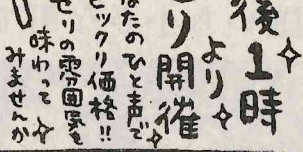 後1時
より
り開催
なたのひと声で
ビックリ価格!!
セリの雰囲気を
味わって
みませんか